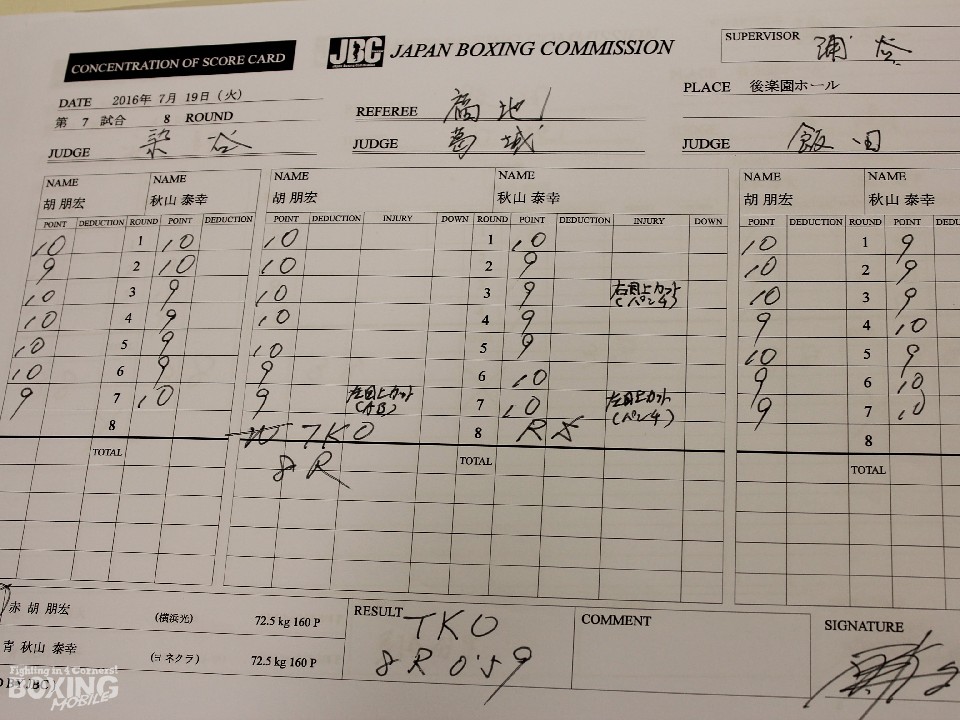 CONCENTRATION OF SCORE CARD
JBC JAPAN BOXING COMMISSION
SUPERVISOR 浦谷
DATE 2016年 7月 19日(火)
PLACE 後楽園ホール
第 7 試合 8 ROUND
REFEREE 福地
JUDGE 染谷
JUDGE 葛城
JUDGE 飯田
NAME NAME NAME NAME NAME NAME
胡 朋宏 秋山 泰幸 胡 朋宏 秋山 泰幸 胡 朋宏 秋山 泰幸
POINT DEDUCTION ROUND POINT DEDUCTION POINT DEDUCTION INJURY DOWN ROUND POINT DEDUCTION INJURY DOWN POINT DEDUCTION ROUND POINT DEDU
10 1 10 10 1 10 10 1 9
9 2 10 10 2 9 10 2 9
10 3 9 10 3 9 右目上カット (パンチ) 10 3 9
10 4 9 10 4 9 9 4 10
10 5 9 10 5 9 10 5 9
10 6 9 9 6 10 9 6 10
9 7 10 9 左目上カット (AB) 7 10 左目上カット (パンチ) 9 7 10
8 W TKO 8 R S 8
8R
TOTAL TOTAL TOTAL
赤 胡 朋宏 (横浜光) 72.5 kg 160 P
青 秋山 泰幸 (ヨネクラ) 72.5 kg 160 P
RESULT TKO
8R 0'59
COMMENT
SIGNATURE
D BY JBC)
Fighting in 4 Corners!
BOXING
MOBILE